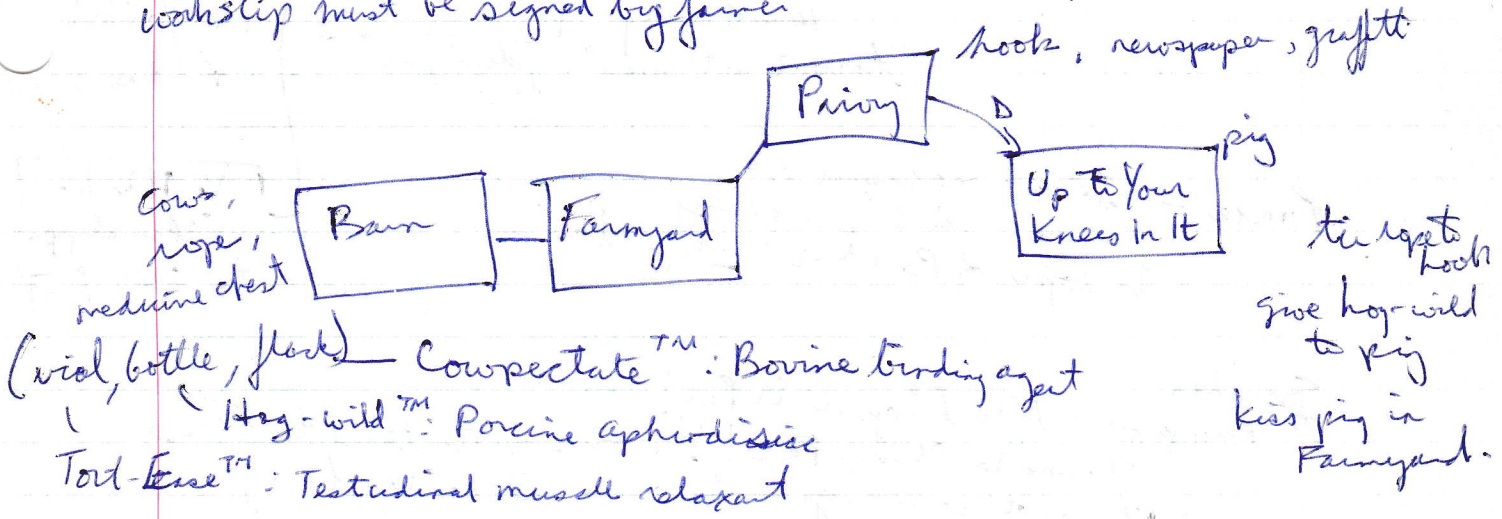 workslip must be signed by farmer
hook, newspaper, graffiti
Privy
D
pig
Up to Your
Knees In It
cows,
rope,
medicine chest
Barn
Farmyard
tie rope to
hook
give hog-wild
to pig
kiss pig in
Farmyard.
(vial, bottle, flask) — Cowpectate™: Bovine binding agent
Hog-wild™: Porcine aphrodisiac
Tort-Ease™: Testudinal muscle relaxant